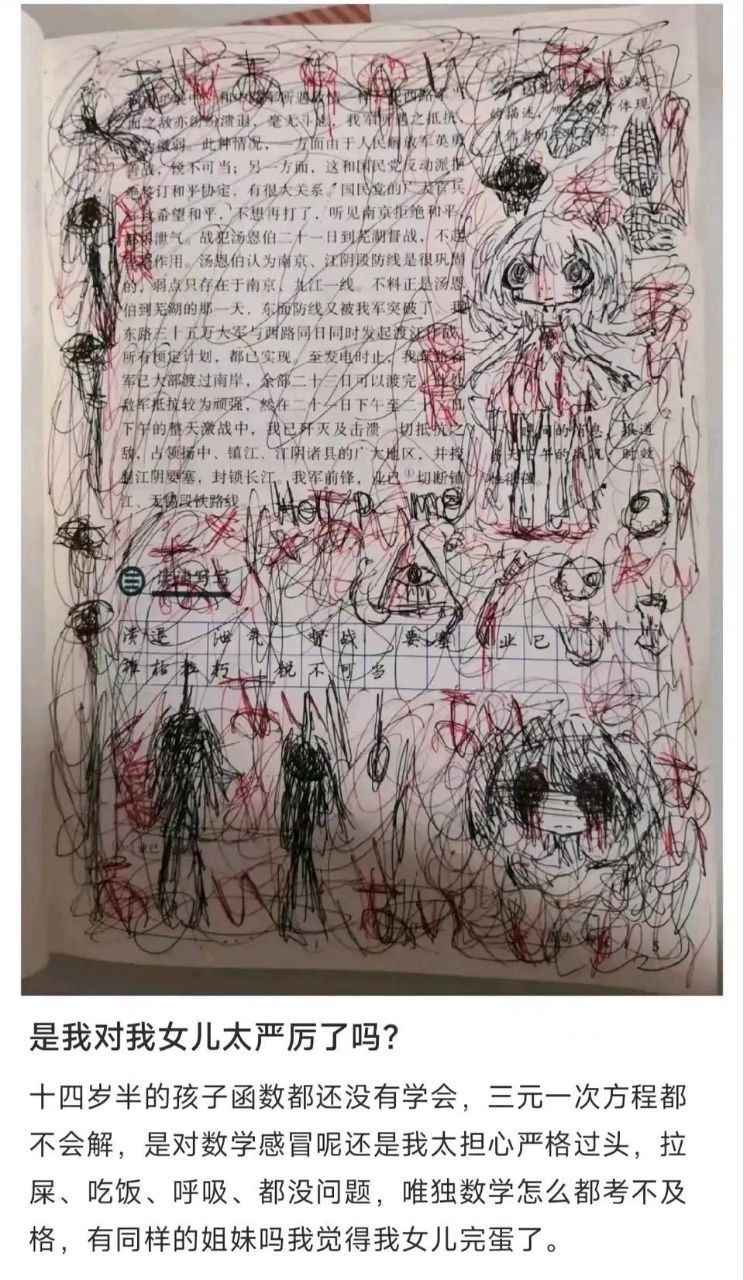 面之敌亦纷纷溃退，毫无斗志，我军所遇之抵抗，
甚为微弱。此种情况，一方面由于人民解放军英勇
善战，锐不可当；另一方面，这和国民党反动派拒
绝签订和平协定，有很大关系。国民党的广大官兵
希望和平，不想再打了，听见南京拒绝和平，
泄气。战犯汤恩伯二十一日到芜湖督战，不起
作用。汤恩伯认为南京、江阴段防线是很巩固
的，弱点只存在于南京、九江一线。不料正是汤恩
伯到芜湖的那一天，东面防线又被我军突破了。我
东路三十五万大军与西路同日同时发起渡江作战。
所有预定计划，都已实现。至发电时止，我东路各
军已大部渡过南岸，余部二十三日可以渡完。此处
敌军抵抗较为顽强，然在二十一日下午至二十二日
下午的整天激战中，我已歼灭及击溃一切抵抗之
敌，占领扬中、镇江、江阴诸县的广大地区，并控
制江阴要塞，封锁长江。我军前锋，业已①切断镇
江、无锡段铁路线。
的描述，体现
时效
Help me
三 读读写写
溃退 泄气 督战 要塞 业已
摧枯拉朽 锐不可当
5
是我对我女儿太严厉了吗？
十四岁半的孩子函数都还没有学会，三元一次方程都
不会解，是对数学感冒呢还是我太担心严格过头，拉
屎、吃饭、呼吸、都没问题，唯独数学怎么都考不及
格，有同样的姐妹吗我觉得我女儿完蛋了。